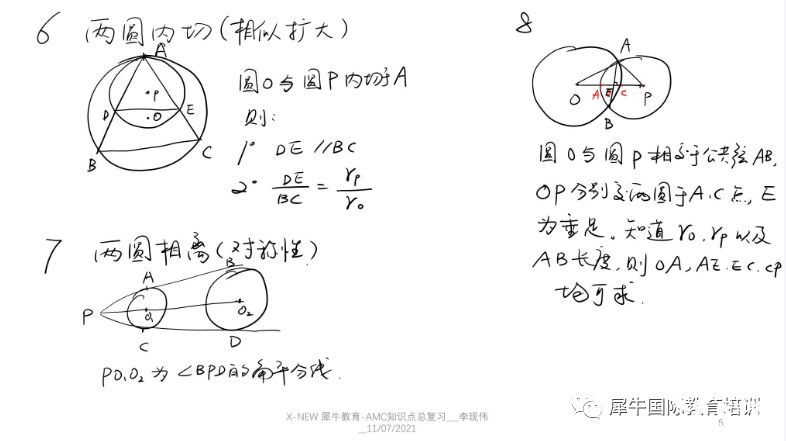 6 两圆内切(相似扩大)
A
P
D
O
E
B
C
圆O与圆P内切于A
则:
1° DE//BC
2° DE/BC = rP/rO
7 两圆相离(对称性)
A
B
P
O₁
O₂
C
D
PO₁O₂为∠BPD的角平分线.
8
A
O
A
E
C
P
B
圆O与圆P相交于公共弦AB,
OP分别交两圆于A.C点, E
为垂足。知道rO.rP以及
AB长度,则OA,AE.EC.CP
均可求.
X-NEW 犀牛教育-AMC知识点总复习__李现伟
__11/07/2021
犀牛国际教育培训
5